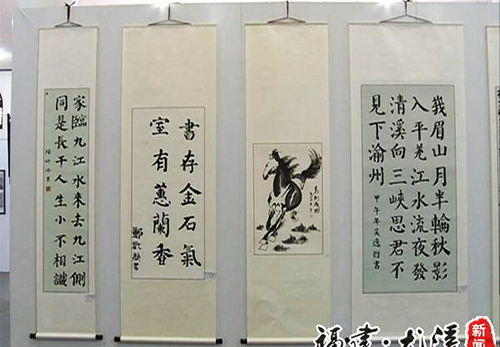 家臨九江水來去九江側
同是長干人生小不相識
書存金石氣
室有蕙蘭香
馬到成功
峩眉山月半輪秋影
入平羌江水流夜發
清溪向三峽思君不
見下渝州
甲午年
福建·尤溪
新闻